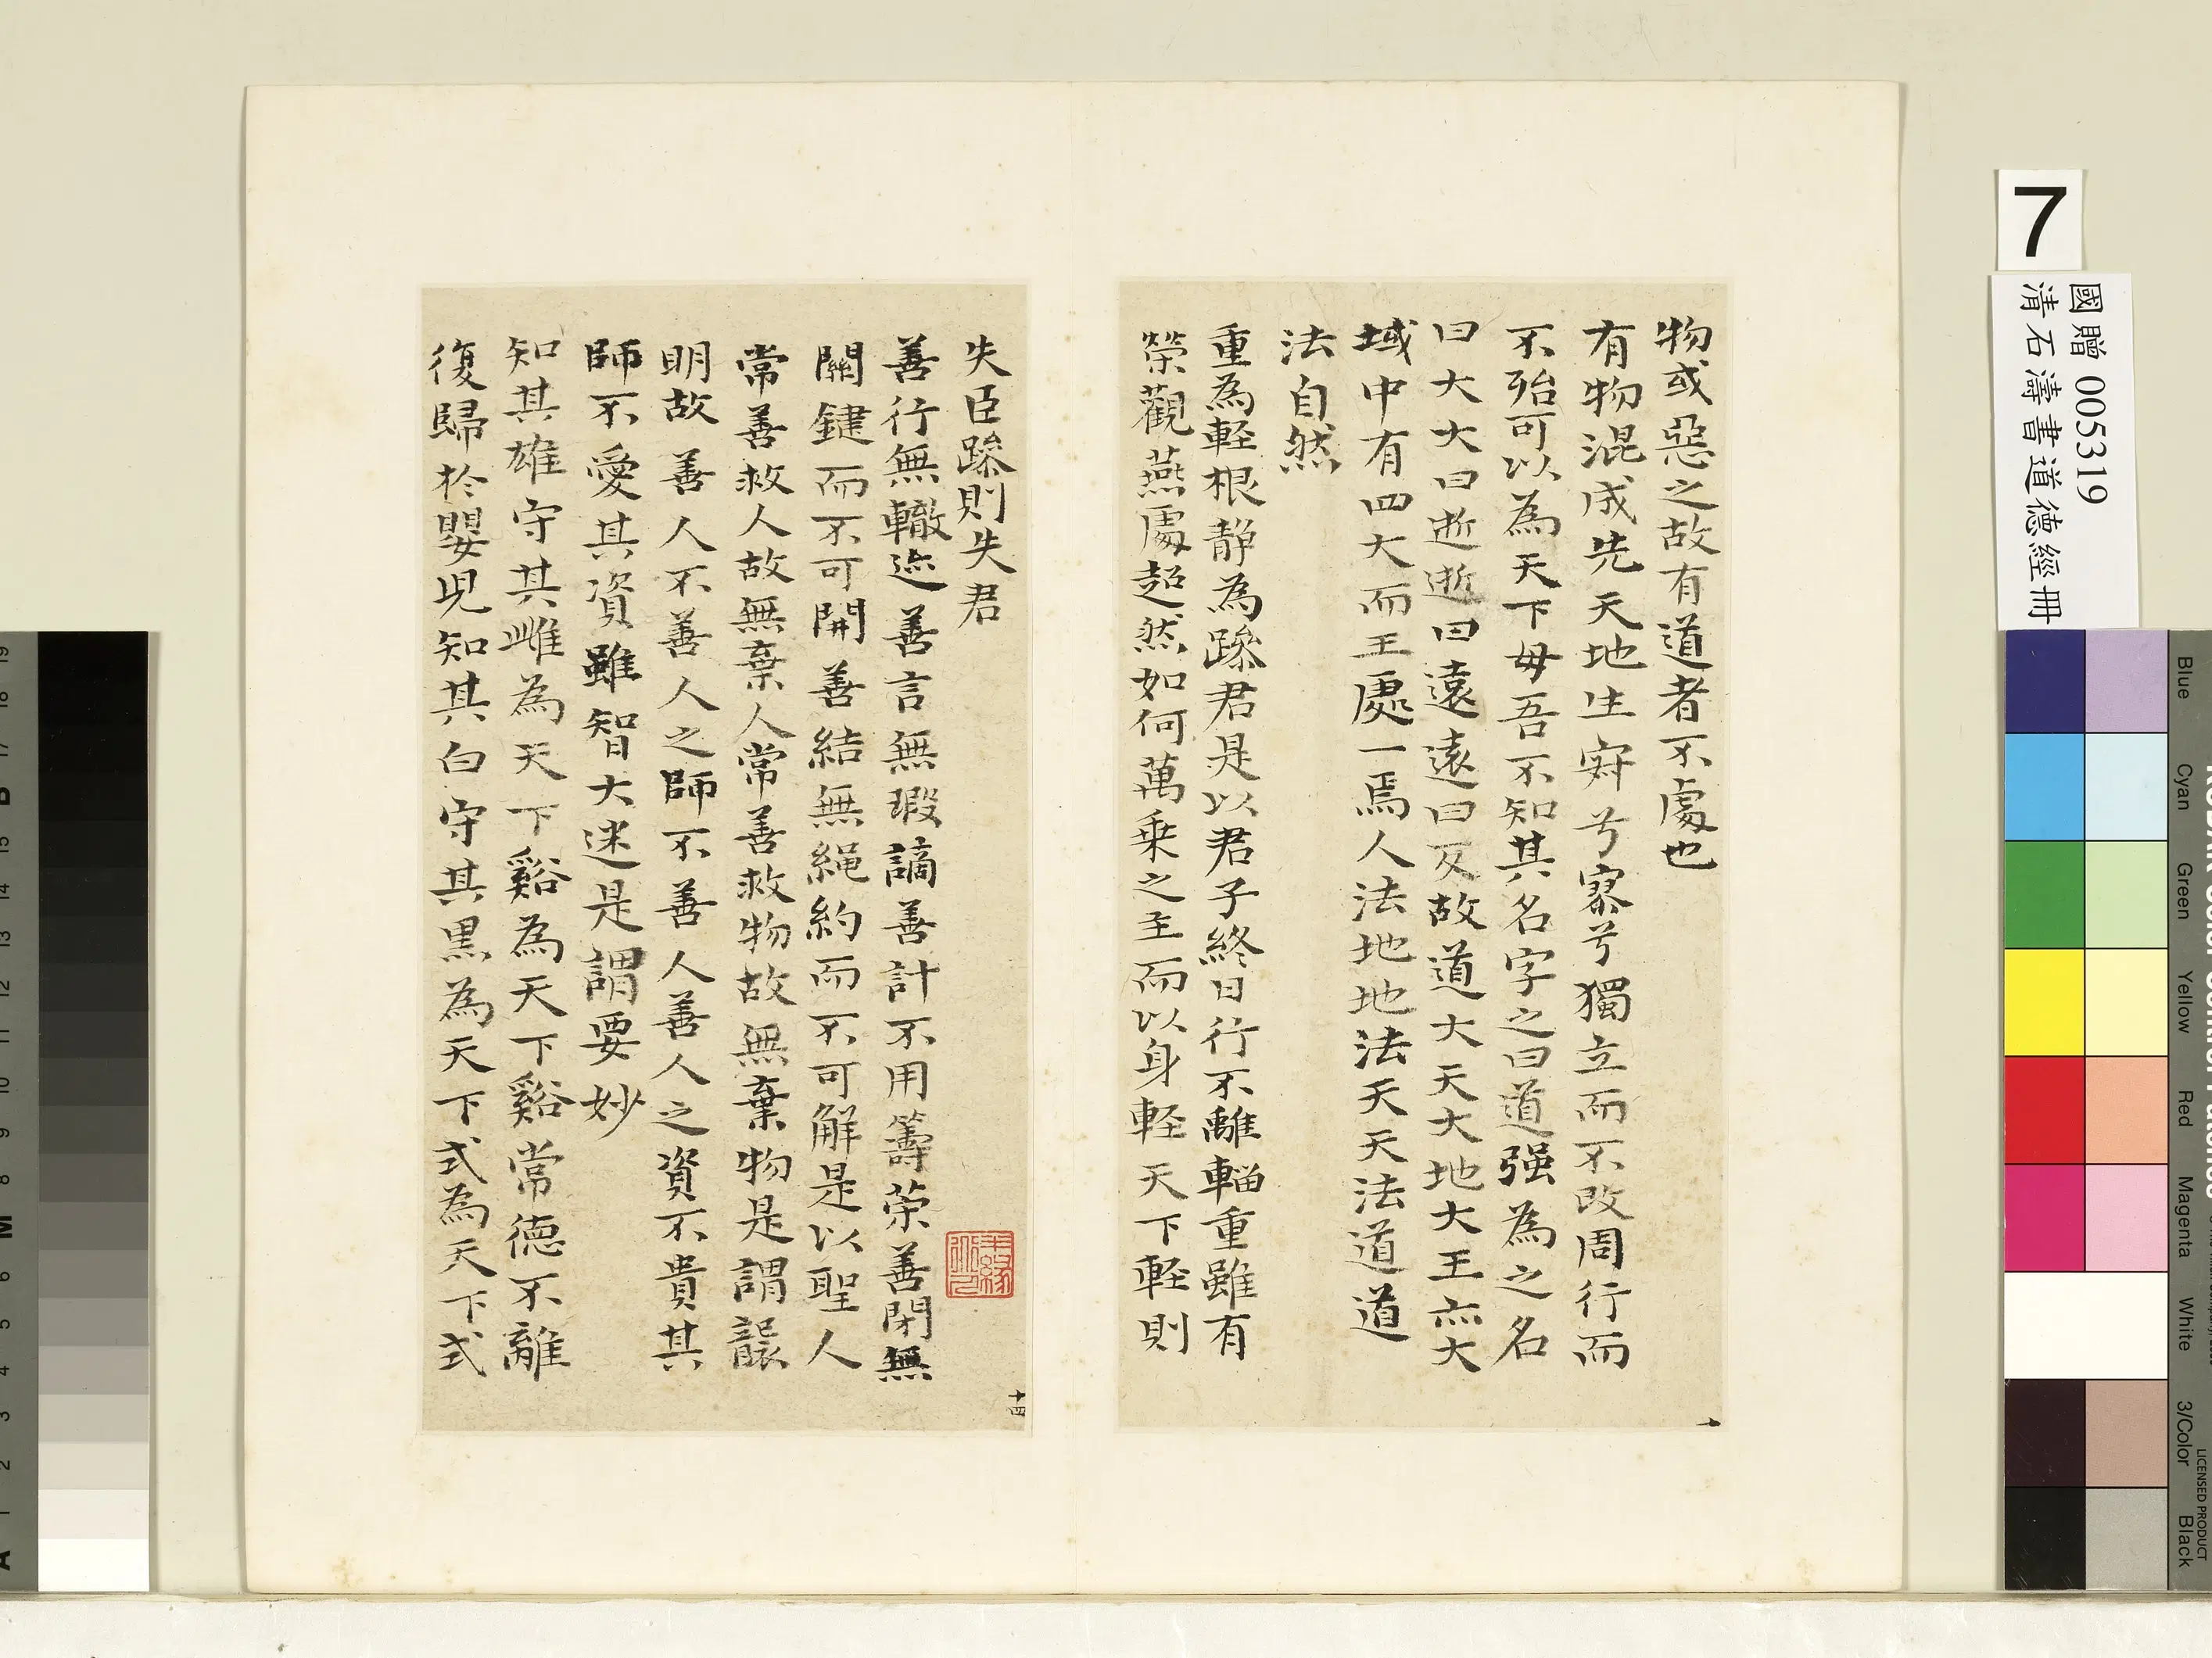 物或惡之故有道者不處也
有物混成先天地生寂兮寥兮獨立而不改周行而
不殆可以為天下母吾不知其名字之曰道强為之名
曰大大曰逝逝曰遠遠曰反故道大天大地大王亦大
域中有四大而王處一焉人法地地法天天法道道
法自然
重為軽根静為躁君是以君子終日行不離輜重雖有
榮觀燕處超然如何萬乗之主而以身軽天下軽則
失臣躁則失君
善行無轍迹善言無瑕謫善計不用籌䇿善閉無
關鍵而不可開善結無繩約而不可解是以聖人
常善救人故無棄人常善救物故無棄物是謂襲
明故善人不善人之師不善人善人之資不貴其
師不愛其資雖智大迷是謂要妙
知其雄守其雌為天下谿為天下谿常德不離
復歸於嬰兒知其白守其黒為天下式為天下式
十四
7
國贈 005319
清石濤書道德經冊
Blue
Cyan
Green
Yellow
Red
Magenta
White
3/Color
Black
LICENSED PRODUCT
A 1 2 3 4 5 6 M 8 9 10 11 12 13 14 15 B 17 18 19